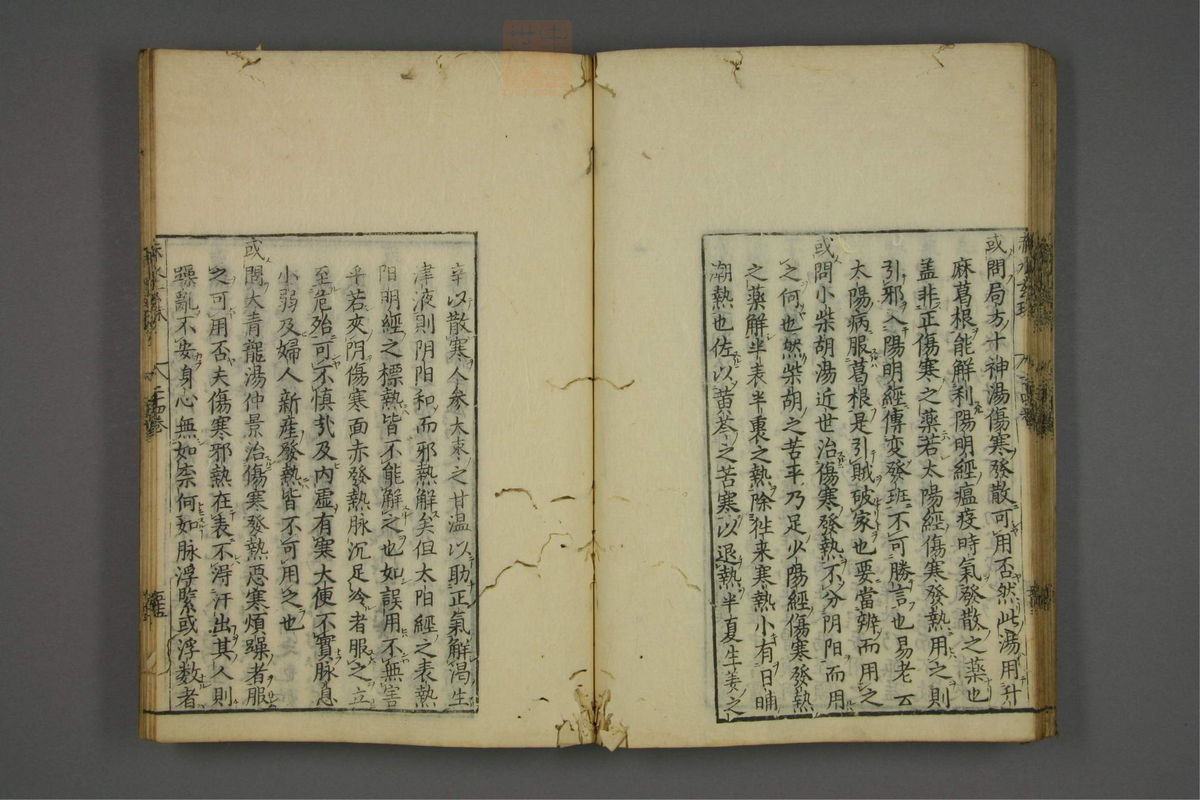 或問局方十神湯傷寒發散可用否然此湯用升
麻葛根能解利陽明經瘟疫時氣發散之藥也
盖非正傷寒之藥若太陽經傷寒發熱用之則
引邪入陽明經傳変發班不可勝言也易老云
太陽病服葛根是引賊破家也要當辨而用之
或問小柴胡湯近世治傷寒發熱不分阴阳而用
之何也然柴胡之苦平乃足少陽經傷寒發熱
之藥解半表半裏之熱除往来寒熱小有日晡
潮熱也佐以黄芩之苦寒以退熱半夏生姜之
辛以散寒人参大枣之甘温以助正氣解渴生
津液則阴阳和而邪熱解矣但太阳經之表熱
阳明經之標熱皆不能解之也如誤用不無害
乎若夾阴傷寒面赤發熱脉沉足冷者服之立
至危殆可不慎㢤及内虚有寒大便不實脉息
小弱及婦人新産發熱皆不可用之也
或問大青龍湯仲景治傷寒發熱惡寒煩躁者服
之可用否夫傷寒邪熱在表不得汗出其人則
躁亂不安身心無如奈何如脉浮緊或浮数者